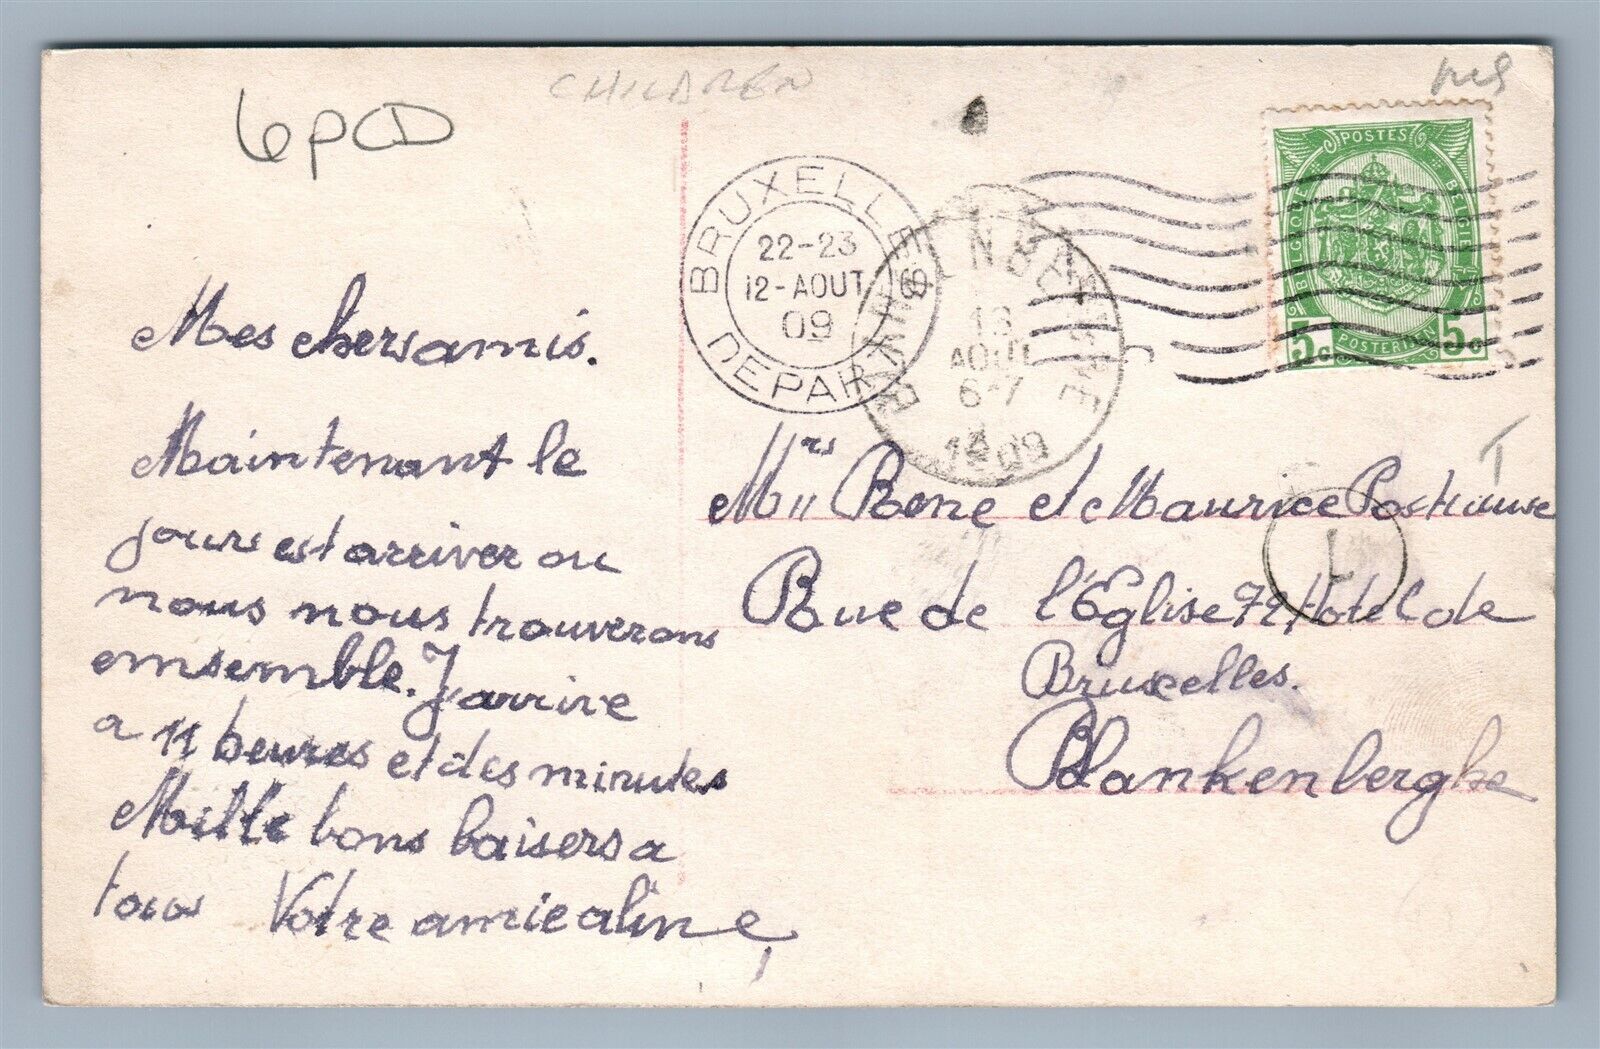 CHILDREN
6PCD
Mes chers amis.
Maintenant le
jours est arriver ou
nous nous trouverons
emsemble. J'arrive
a 11 heures et des minutes
Mille bons baisers a
tous Votre amie aline
BRUXELLES
22-23
12-AOUT
09
DEPART
BLANKENBERGHE
13
AOUT
6-7
1909
POSTES
BELGIQUE
BELGIË
POSTERIJEN
5c 5c
Mrs Rene et Maurice
Rue de l'Eglise 79 Hotel de
Bruxelles.
Blankenberghe
T
1